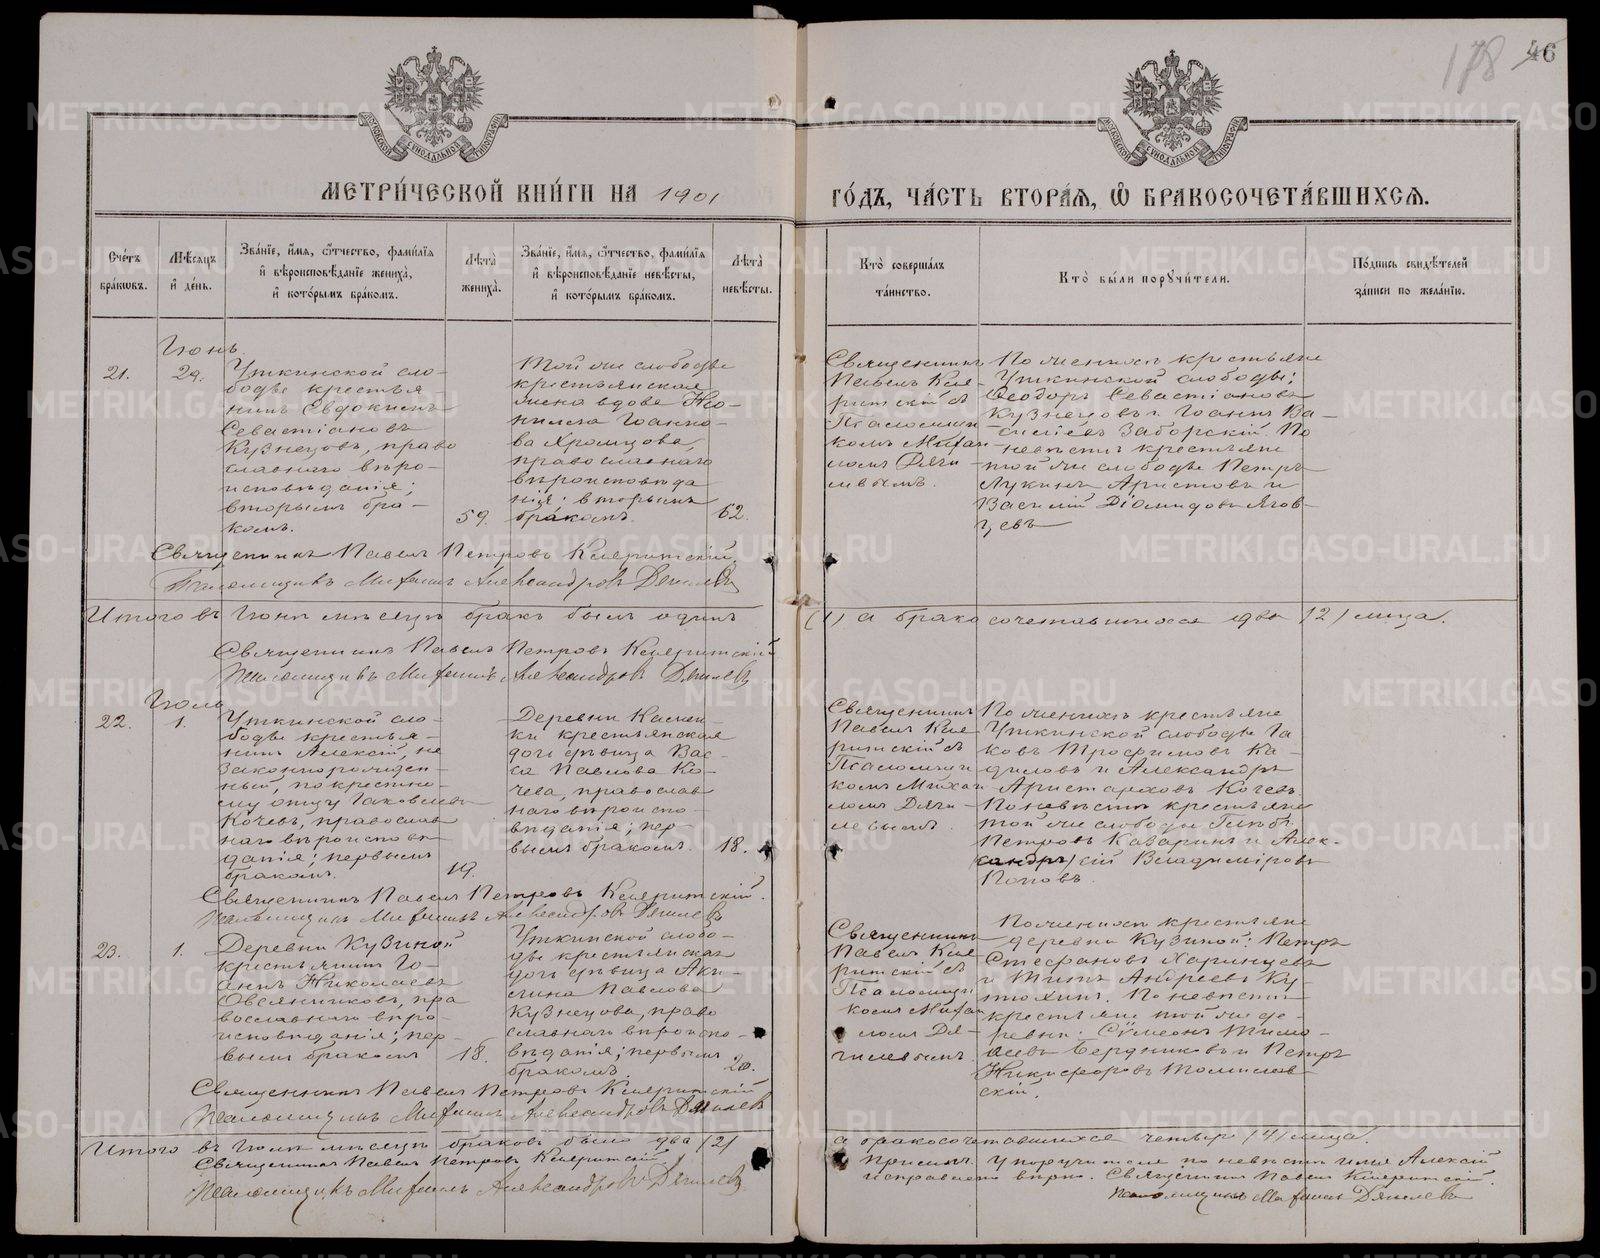 178 46
МОСКОВСКОЙ СѴНОДАЛЬНОЙ ТИПОГРАФІИ
МОСКОВСКОЙ СѴНОДАЛЬНОЙ ТИПОГРАФІИ
МЕТРИ́ЧЕСКОЙ КНИ́ГИ НА 1901 ГО́ДЪ, ЧА́СТЬ ВТОРА́Ѧ, Ѡ҆ БРАКОСОЧЕТА́ВШИХСѦ.
Сче́тъ бра́кѡвъ.
Мѣ́сѧцъ и҆ де́нь.
Зва́нїе, и҆́мѧ, ѻ҆́тчество, фамилїѧ и҆ вѣроисповѣ́данїе жениха̀, и҆ кото́рымъ бра́комъ.
Лѣ́та̀ жениха̀.
Зва́нїе, и҆́мѧ, ѻ҆́тчество, фамилїѧ и҆ вѣроисповѣ́данїе невѣ́сты, и҆ кото́рымъ бра́комъ.
Лѣ́та̀ невѣ́сты.
Кто̀ соверша́лъ та́инство.
Кто̀ бы́ли порꙋчи́тели.
По́дпись свидѣ́телей за́писи по жела́нїю.
Іюнь
21.
29.
Уткинской сло-
боды крестья-
нинъ Евдокимъ
Севастіановъ
Кузнецовъ, право
славнаго вѣро-
исповѣданія;
вторымъ бра-
комъ.
59.
Той же слободы
крестьянская
жена вдова Нео-
нилла Іоанно-
ва Хромцова,
православнаго
вѣроисповѣда
нія; вторымъ
бракомъ.
62.
Священникъ
Павелъ
съ
Псаломщи
комъ Михаи
ломъ Дяги-
левымъ.
По женихѣ крестьяне
Уткинской слободы:
Ѳеодоръ Севастіановъ
Кузнецовъ и Іоаннъ Ва-
силіевъ Заборскій. По
невѣстѣ крестьяне
той же слободы Петръ
Лукинъ Аристовъ и
Василій Діомидовъ
Священникъ Павелъ Петровъ
Псаломщикъ Михаилъ Александровъ Дягилевъ
Итого въ Іюнѣ мѣсяцѣ бракъ былъ одинъ (1) а бракосочетавшихся два (2) лица.
Священникъ Павелъ Петровъ
Псаломщикъ Михаилъ Александровъ Дягилевъ
Іюль
22.
1.
Уткинской сло-
боды крестья-
нинъ Алексій, не
законнорожден-
ный, по крестно-
му отцу Іаковлевъ
Кочевъ, православ
наго вѣроисповѣ
данія; первымъ
бракомъ.
19.
Деревни Камен-
ки крестьянская
дочь дѣвица Вас-
са Павлова Ко-
чева, православ
наго вѣроиспо-
вѣданія; пер-
вымъ бракомъ.
18.
Священникъ
Павелъ
съ
Псаломщи
комъ Михаи
ломъ Дяги-
левымъ.
По женихѣ крестьяне
Уткинской слободы Іа
ковъ Трофимовъ Ка-
диловъ и Александръ
Аристарховъ Кочевъ.
По невѣстѣ крестьяне
той же слободы Глѣбъ
Петровъ Каваринъ и Алек-
(сандръ) сій Владиміровъ
Поповъ.
Священникъ Павелъ Петровъ
Псаломщикъ Михаилъ Александровъ Дягилевъ
23.
1.
Деревни Кузиной
крестьянинъ Іо-
аннъ Николаевъ
Овсянниковъ, пра
вославнаго вѣро-
исповѣданія; пер-
вымъ бракомъ
18.
Уткинской слобо-
ды крестьянская
дочь дѣвица Аки-
лина Павлова
Кузнецова, право
славнаго вѣроиспо-
вѣданія; первымъ
бракомъ.
20.
Священникъ
Павелъ
съ
Псаломщи
комъ Михаи
ломъ Дя-
гилевымъ.
По женихѣ крестьяне
деревни Кузиной: Петръ
Стефановъ Харинцевъ
и Титъ Андреевъ Ку-
тюхинъ. По невѣстѣ
крестьяне той же де-
ревни: Сѵмеонъ Тимо-
ѳеевъ Бердниковъ и Петръ
Никифоровъ Томилов-
скій.
Священникъ Павелъ Петровъ
Псаломщикъ Михаилъ Александровъ Дягилевъ
Итого въ Іюлѣ мѣсяцѣ браковъ было два (2) а бракосочетавшихся четыре (4) лица.
Священникъ Павелъ Петровъ
Псаломщикъ Михаилъ Александровъ Дягилевъ
Примѣч. У поручителя по невѣстѣ имя Алексій
исправлено вѣрно. Священникъ Павелъ
Псаломщикъ Михаилъ Дягилевъ
METRIKI.GASO-URAL.RU